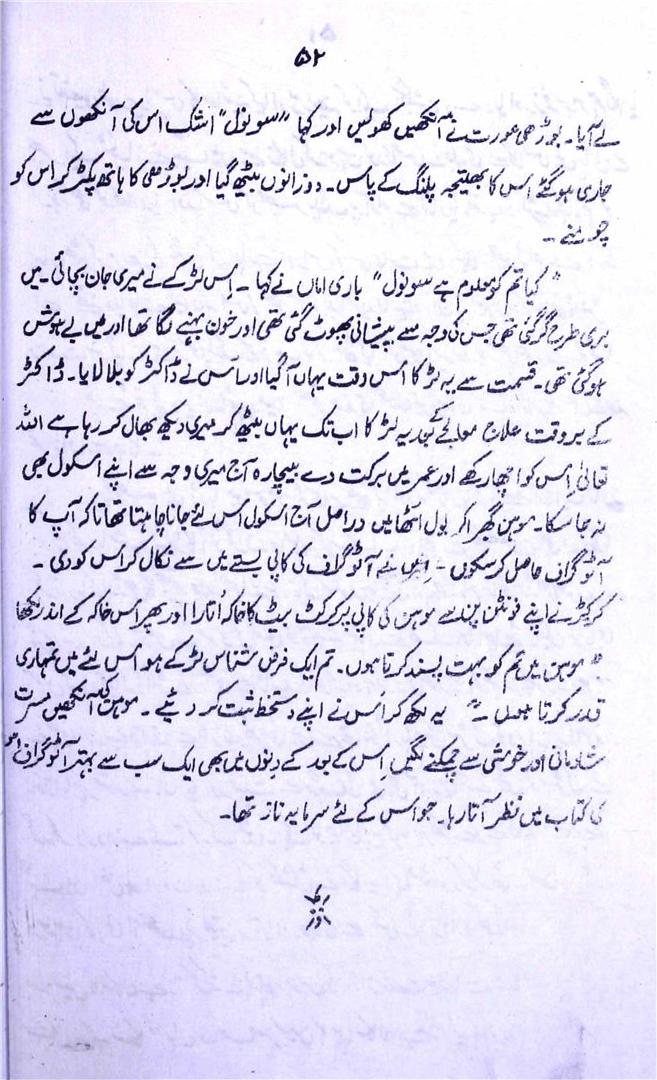 ۵۲
لے آیا۔ بوڑھی عورت نے آنکھیں کھولیں اور کہا "سونول" اشک اس کی آنکھوں سے
جاری ہو گئے اس کا بھتیجہ پلنگ کے پاس۔ دوزانوں بیٹھ گیا اور بوڑھی کا ہاتھ پکڑ کر اس کو
چومنے۔
"کیا تم کو معلوم ہے سونول" باری اماں نے کہا۔ اِس لڑکے نے میری جان بچائی۔ میں
بری طرح گر گئی تھی جس کی وجہ سے پیشانی پھوٹ گئی تھی اور خون بہنے لگا تھا اور میں بے ہوش
ہو گئی تھی۔ قسمت سے یہ لڑکا اُس وقت یہاں آ گیا اور اُس نے ڈاکٹر کو بلا لایا۔ ڈاکٹر
کے بروقت علاج معالجے کے بعد یہ لڑکا اب تک یہاں بیٹھ کر میری دیکھ بھال کر رہا ہے اللہ
تعالٰی اِس کو اچھا رکھے اور عمر میں برکت دے بیچارہ آج میری وجہ سے اپنے اسکول بھی
نہ جا سکا۔ موہن گھبرا کر بول اٹھا میں دراصل آج اسکول اس لئے جانا چاہتا تھا تاکہ آپ کا
آٹو گراف حاصل کر سکوں۔ اس نے آٹو گراف کی کاپی بستے میں سے نکال کر اس کو دی۔
کرکیٹر نے اپنے فونٹن پن سے موہن کی کاپی پر کرکٹ بیٹ کا خاکہ اُتارا اور پھر اس خاکہ کے اندر لکھا
"موہن میں تم کو بہت پسند کرتا ہوں۔ تم ایک فرض شناس لڑکے ہو اس لئے میں تمہاری
قدر کرتا ہوں۔" یہ لکھ کر اُس نے اپنے دستخط ثبت کر دیئے۔ موہن کی آنکھیں مسرت
شادمانی اور خوشی سے چمکنے لگیں اِس کے بعد کے دِنوں میں بھی ایک سب سے بہتر آٹو گراف اُس
کی کتاب میں نظر آتا رہا۔ جو اس کے لئے سرمایہ ناز تھا۔